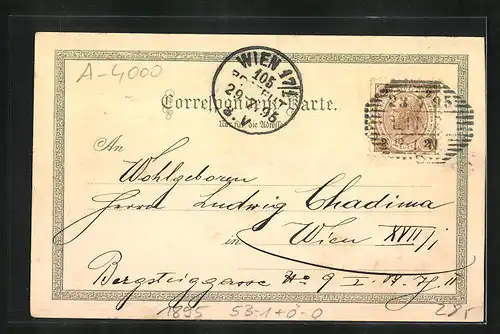 A-4000
WIEN 17/1
105
29. 95
8. V.
Correspondenz-Karte.
Nur für die Adresse.
An
Wohlgeboren
Herrn Ludwig Chadima
in Wien XVII/1
Bergsteiggasse No 9
1895 53-1+0-0